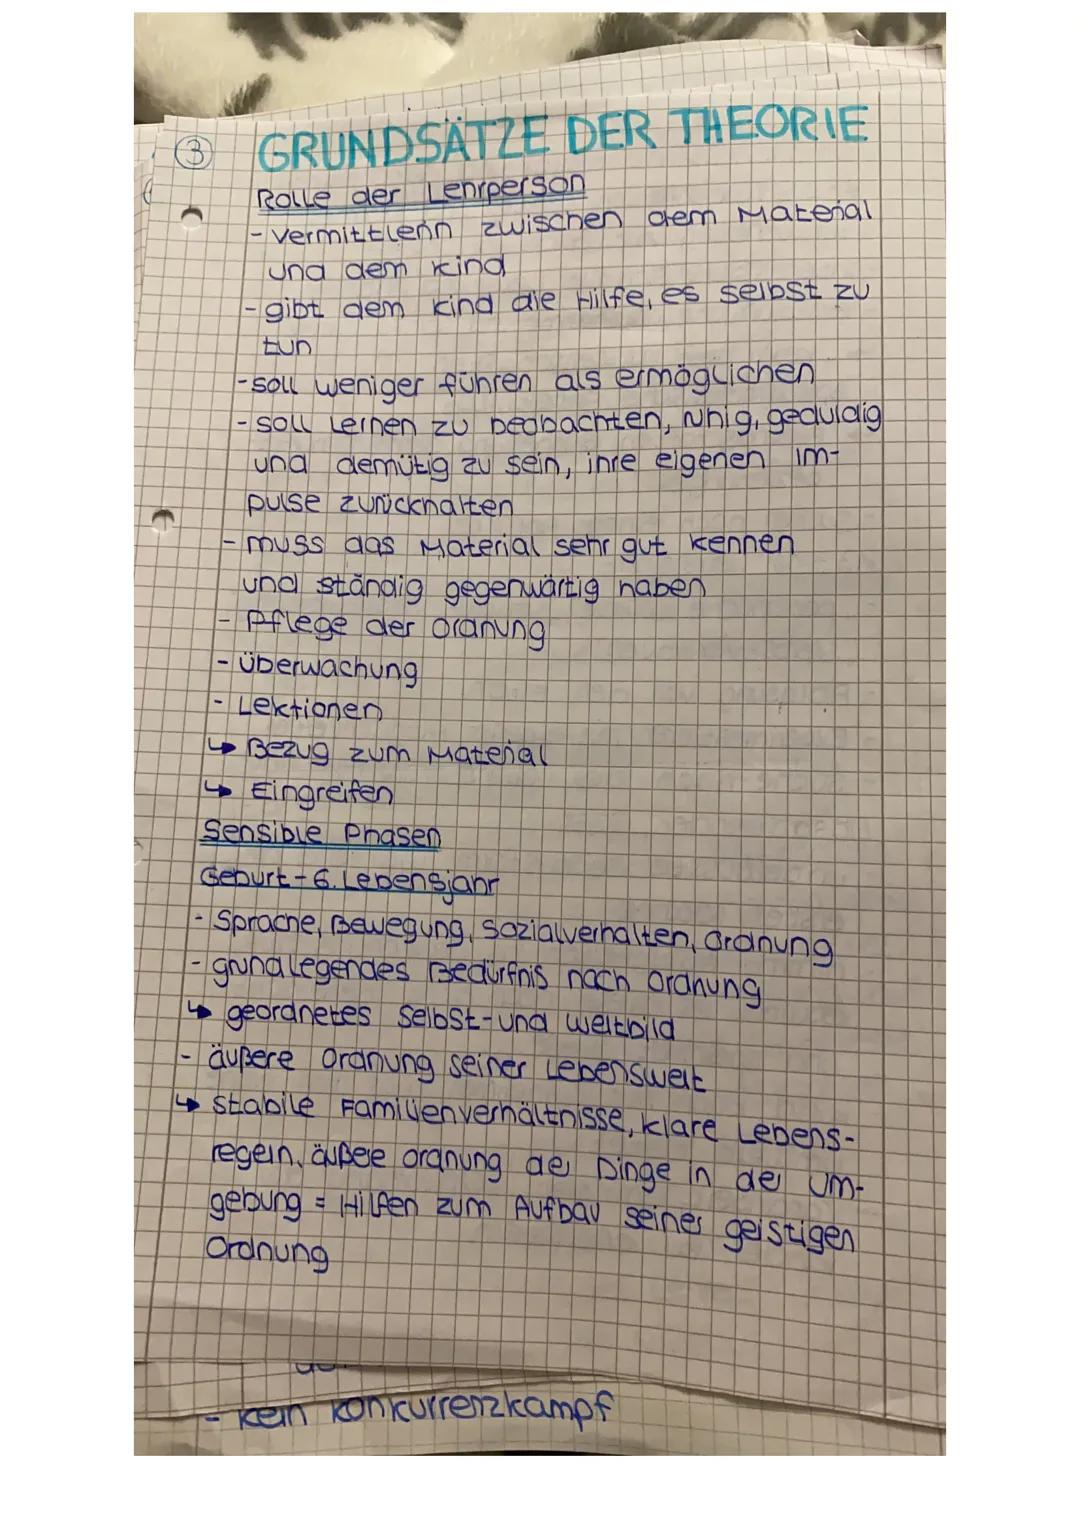 3 GRUNDSÄTZE DER THEORIE
Rolle der Lehrperson
- Vermittlerin zwischen dem Material
und dem Kind
- gibt dem Kind die Hilfe, es selbst zu
tun
- soll weniger führen als ermöglichen
- soll lernen zu beobachten, ruhig, geduldig
und demütig zu sein, ihre eigenen Im-
pulse zurückhalten
- muss das Material sehr gut kennen
und ständig gegenwärtig haben
- Pflege der Ordnung
- Überwachung
- Lektionen
↳ Bezug zum Material
↳ Eingreifen
Sensible Phasen
Geburt - 6. Lebensjahr
- Sprache, Bewegung, Sozialverhalten, Ordnung
- grundlegendes Bedürfnis nach Ordnung
↳ geordnetes Selbst- und Weltbild
- äußere Ordnung seiner Lebenswelt
↳ stabile Familienverhältnisse, klare Lebens-
regeln, äußere Ordnung der Dinge in der Um-
gebung = Hilfen zum Aufbau seiner geistigen
Ordnung
- kein Konkurrenzkampf